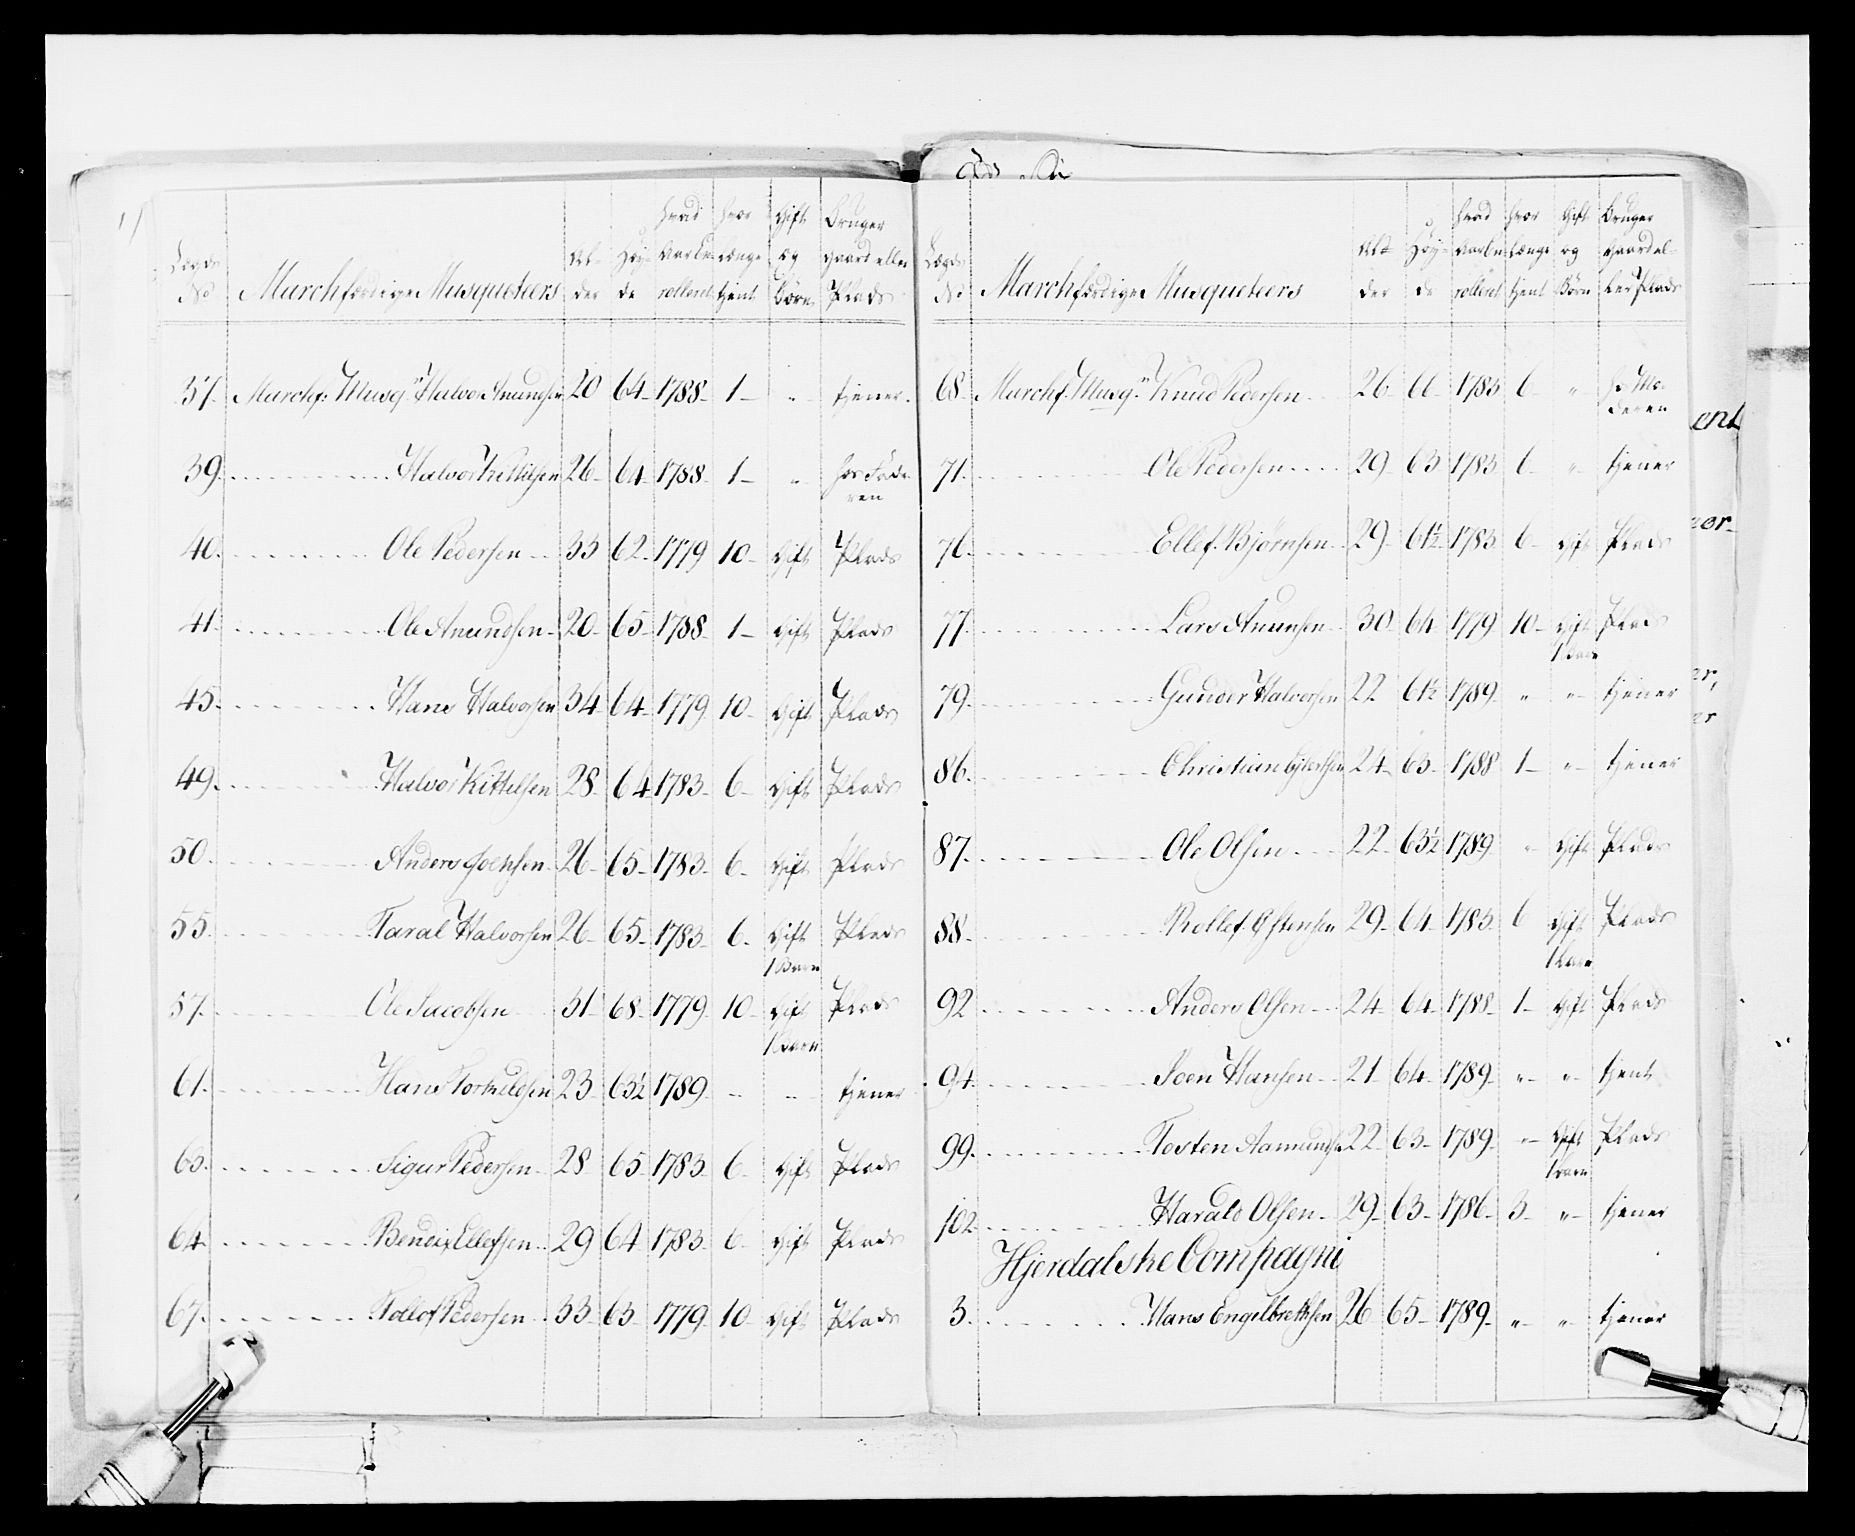 Lægds No | Marchfærdige Musqueteers | Al- der | Høy- de | hvad aar En- rollert | hvor længe tjent | Gift og Børn | Bruger gaard eller Plads
37. Marchf: Musq: Halvor Anundsen 20 64 1788 1 " tjener
39. Halvor Kittilsen 26 64 1788 1 " hos Fade-
ren
40. Ole Pedersen 33 62 1779 10 Gift Plads
41. Ole Anundsen 20 65 1788 1 Gift Plads
45. Hans Halvorsen 34 64 1779 10 Gift Plads
49. Halvor Kittelsen 28 64 1783 6 Gift Plads
50. Anders Joensen 26 65 1783 6 Gift Plads
55. Taral Halvorsen 26 65 1783 6 Gift Plads
1 Barn
57. Ole Jacobsen 31 68 1779 10 Gift Plads
1 Barn
61. Hans Torkildsen 23 63½ 1789 " " tjener
63. Sigur Pedersen 28 65 1783 6 Gift Plads
64. Bendix Ellefsen 29 64 1783 6 Gift Plads
67. Tollof Pedersen 33 63 1779 10 Gift Plads
Lægds No | Marchfærdige Musqueteers | Al- der | Høy- de | hvad aar En- rollert | hvor længe tjent | Gift og Børn | Bruger gaard el- ler Plads
68. Marchf: Musq: Knud Pedersen 26 66 1783 6 " Mo-
deren
71. Ole Pedersen 29 63 1783 6 " tjener
76. Ellef Bjørnsen 29 61½ 1783 6 Gift Plads
77. Lars Anunsen 30 64 1779 10 Gift Plads
1 Barn
79. Gunder Halvorsen 22 61½ 1789 " " tjener
86. Christian 24 63 1788 1 " tjener
87. Ole Olsen 22 63½ 1789 " Gift Plads
88. Rollef Østensen 29 64 1783 6 Gift Plads
1 Barn
92. Anders Olsen 24 64 1788 1 Gift Plads
94. Joen Hansen 21 64 1789 " " tjent
99. Tosten Aamundsen 22 63 1789 " Gift Plads
1 Barn
102. Harald Olsen 29 63 1786 3 " tjener
Hjerdalske Compagni
3. Hans Engelbrethsen 26 65 1789 " " tjener